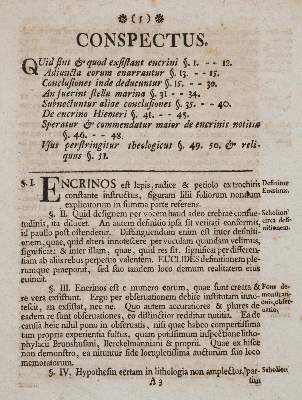 (5)
CONSPECTUS.
QUid sint & quod exsistant encrini §. 1. - - 12.
Adiuncta eorum enarrantur §. 13. - - 15.
Conclusiones inde deducuntur §. 15. - - 30.
An fuerint stellæ marinæ §. 31 - - 34.
Subnectuntur aliæ conclusiones §. 35. - - 40.
De encrino Hiemeri §. 41. - - 45.
Speratur & commendatur maior de encrinis notitia
§. 46. - - 48.
Vsus perstringitur theologicus §. 49. 50. & reli-
quus §. 51.
§. I. ENCRINOS est lapis, radice & petiolo ex trochitis
constante instructus, figuram lilii foliorum nondum
explicatorum in summa parte referens.
Definitur
Encrinus.
§. II. Quid designem per vocem haud adeo crebræ consue-
tudinis, ita dilucet. An autem definitio ipsis sit veritati conformis,
id paullo post ostendetur. Distinguendum enim est inter definiti-
onem, quæ, quid alteri innotescere per vocalum quandam velimus,
significat: & inter illam, quæ, quid res sit, significat per differen-
tiam ab aliis rebus perpetuo valentem. EUCLIDES definitionem ple-
rumque præponit, sed suo tandem loco demum realitatem eius
euincit.
Scholion
definitionem.
§. III. Encrinos esse e numero eorum, quæ sunt creata &
re vera exsistunt. Ergo per observationem debite institutam inno-
tescit, an exsistat, nec ne. Quo autem accuratiores & plures de
eadem re sunt observationes, eo distinctior redditur notitia. Ea de
causa heic nihil pono in observatis, nisi quæ habeo compertissima
tum propria experientia fultus, quam potissimum inspectione litho-
phylacii Brunshusiani, Berckelmanniani & proprii. Quæ ex hisce
non demonstro, ea nituntur fide locupletissima auctorum suo loco
memoratorum.
Fons de-
§. IV. Hypothesin certam in lithologia non amplector, par-
Scholion
A 3